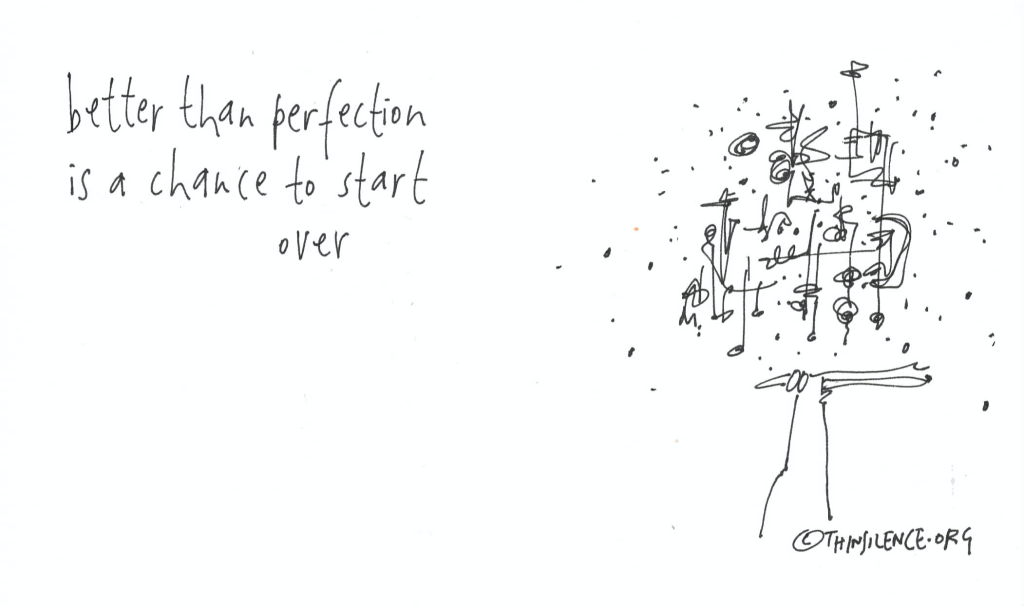 better than perfection
is a chance to start
over
©THINSILENCE.ORG